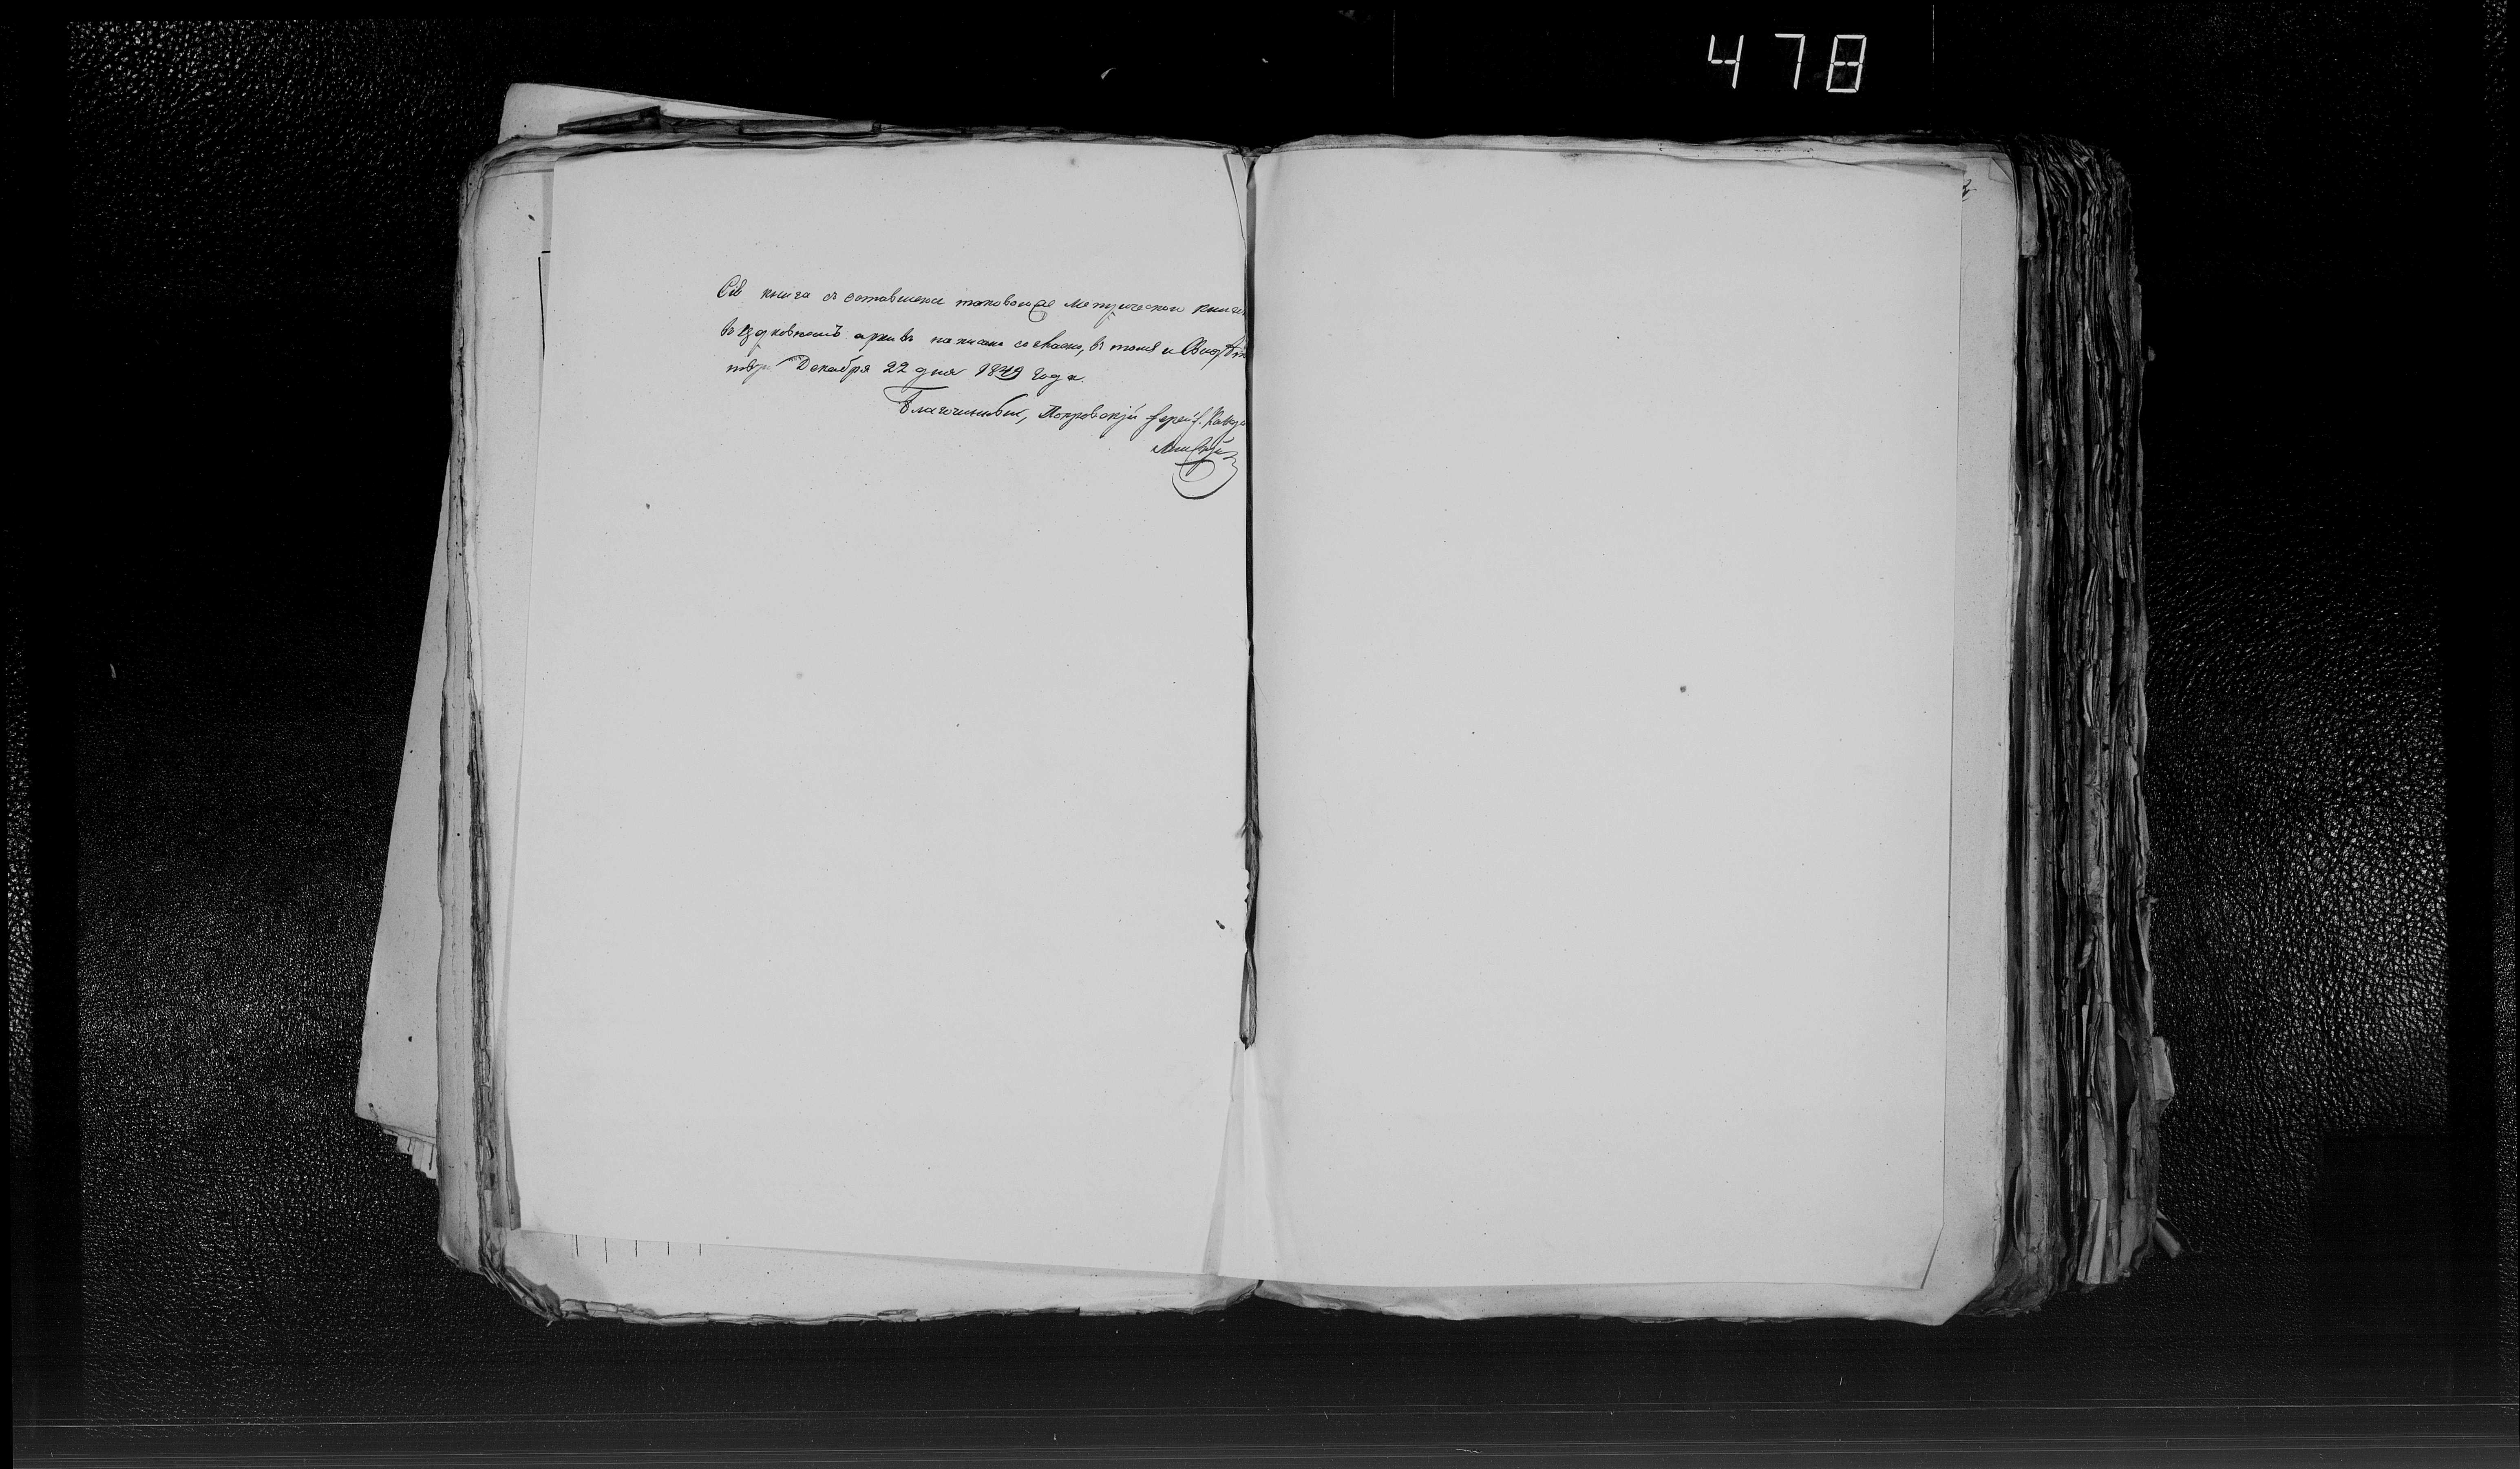 478
Сія книга съ оставшеюся таковою же метрическою книгою
въ Церковномъ архивѣ написана согласно, въ томъ и Свидѣтель
Декабря 22 дня 1849 года.
Благочинный, Покровскій Іерей